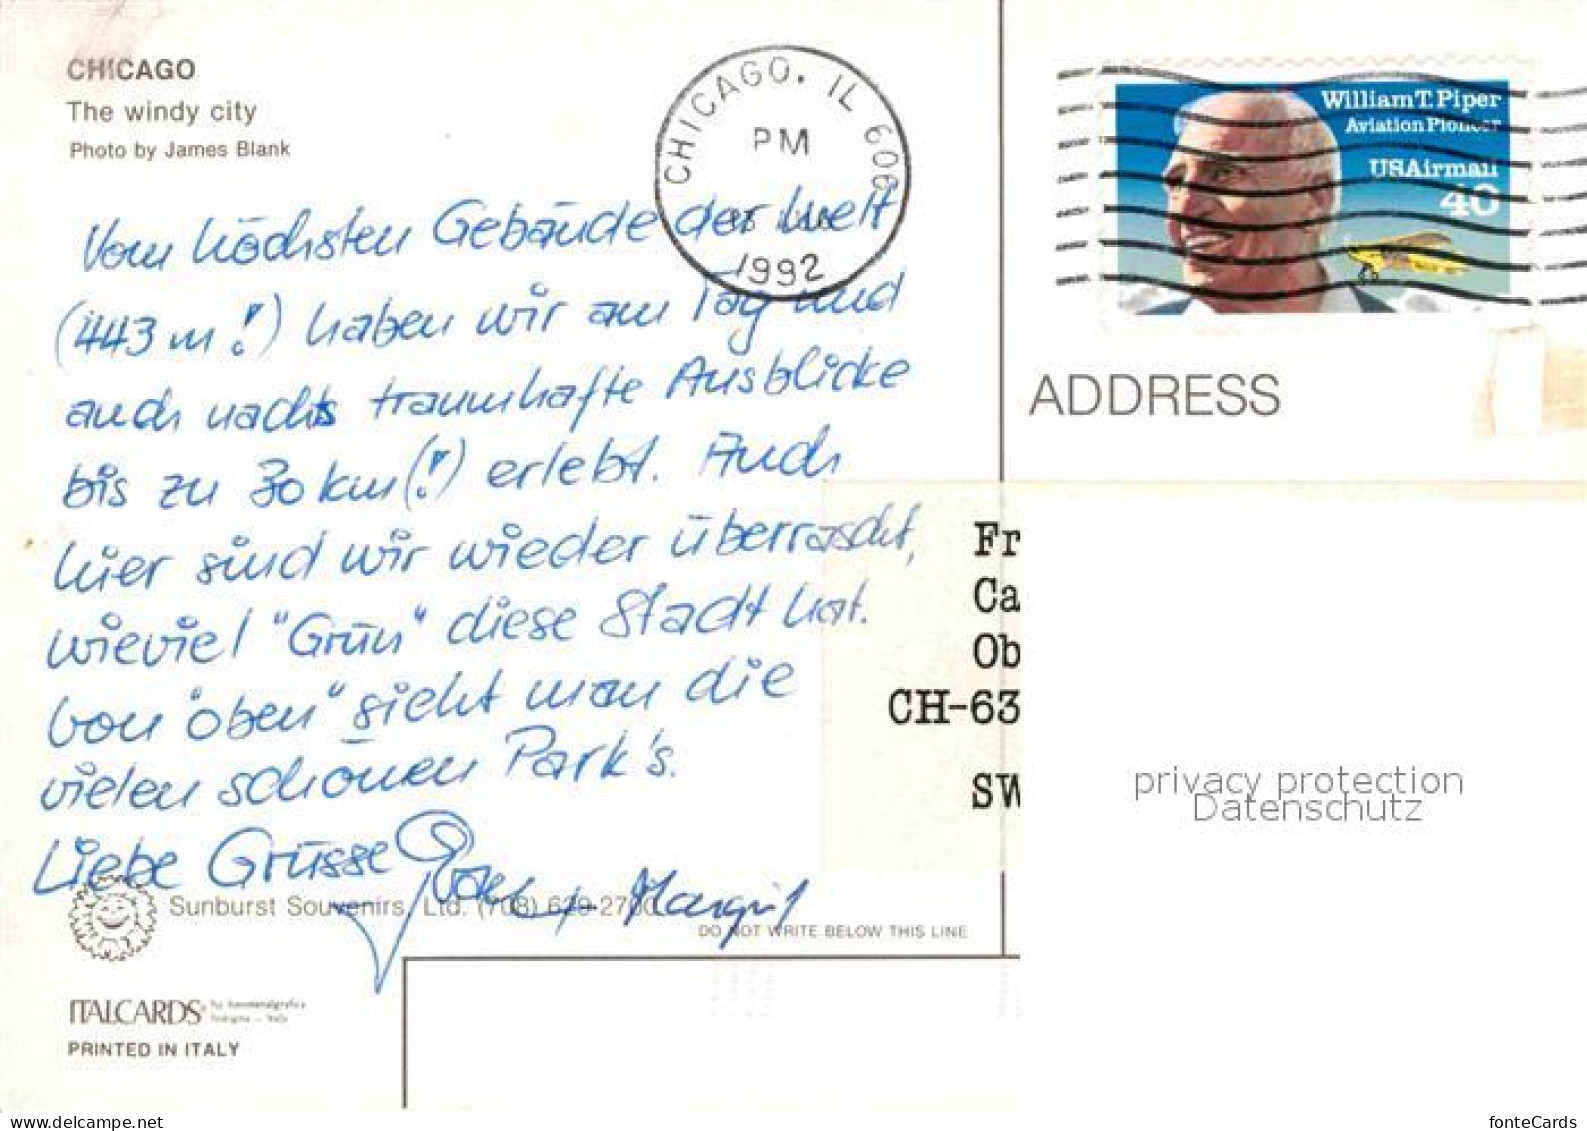 CHICAGO
The windy city
Photo by James Blank
CHICAGO, IL 606
PM
1992
William T. Piper
Aviation Pioneer
USAirmail
40
Vom höchsten Gebäude der Welt
(443 m!) haben wir am Tag und
auch nachts traumhafte Ausblicke
bis zu 30 km(!) erlebt. Auch
hier sind wir wieder überrascht,
wieviel "Grün" diese Stadt hat.
Von "oben" sieht man die
vielen schönen Park's.
Liebe Grüsse
+ Margrit
ADDRESS
Fr
Ca
Ob
CH-63
SW
privacy protection
Datenschutz
Sunburst Souvenirs, Ltd. (708) 629-2700
DO NOT WRITE BELOW THIS LINE
ITALCARDS
PRINTED IN ITALY
www.delcampe.net
fonteCards